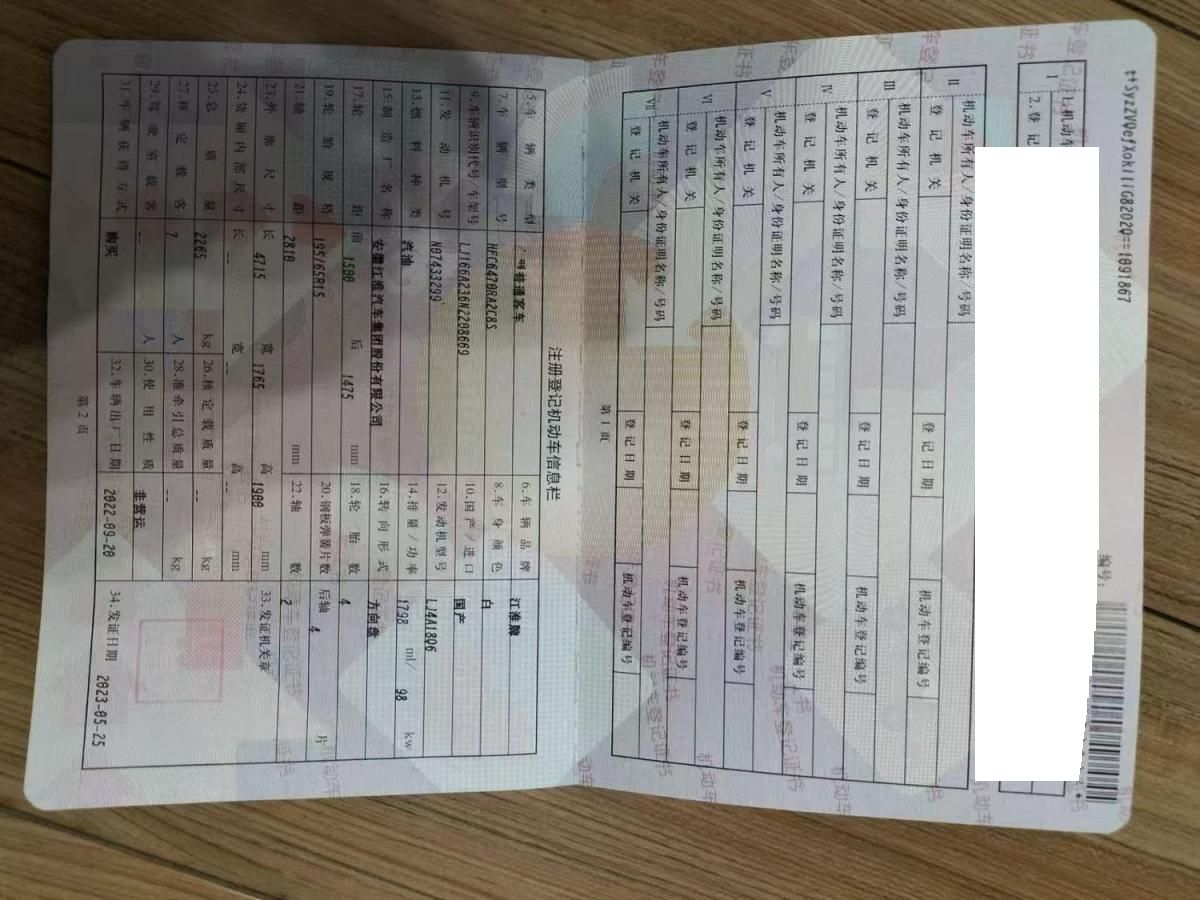 t+SyzZVQefXokIliG8202Q==1091867
编号:
I
1.机动车
2.登 记
II
机动车所有人/身份证明名称/号码
登 记 机 关
登 记 日 期
机动车登记编号
III
机动车所有人/身份证明名称/号码
登 记 机 关
登 记 日 期
机动车登记编号
IV
机动车所有人/身份证明名称/号码
登 记 机 关
登 记 日 期
机动车登记编号
V
机动车所有人/身份证明名称/号码
登 记 机 关
登 记 日 期
机动车登记编号
VI
机动车所有人/身份证明名称/号码
登 记 机 关
登 记 日 期
机动车登记编号
VII
机动车所有人/身份证明名称/号码
登 记 机 关
登 记 日 期
机动车登记编号
第 1 页
注册登记机动车信息栏
5.车 辆 类 型 普通客车 6.车 辆 品 牌 江淮牌
7.车 辆 型 号 HFC6470RA2C8S 8.车 身 颜 色 白
9.车辆识别代号/车架号 LJ166A236N2208669 10.国产/进口 国产
11.发 动 机 号 N07433299 12.发动机型号 LJ4A18Q6
13.燃 料 种 类 汽油 14.排量/功率 1798 ml/ 98 kw
15.制 造 厂 名 称 安徽江淮汽车集团股份有限公司 16.转 向 形 式 方向盘
17.轮 距 前 1500 后 1475 mm 18.轮 胎 数 4
19.轮 胎 规 格 195/65R15 20.钢板弹簧片数 后轴 4 片
21.轴 距 2810 mm 22.轴 数 2
23.外 廓 尺 寸 长 4715 宽 1765 高 1900 mm 33.发证机关章
24.货厢内部尺寸 长 -- 宽 -- 高 -- mm
25.总 质 量 2265 kg 26.核 定 载 质 量 -- kg
27.核 定 载 客 7 人 28.准牵引总质量 -- kg
29.驾 驶 室 载 客 -- 人 30.使 用 性 质 非营运
31.车 辆 获 得 方 式 购买 32.车辆出厂日期 2022-09-20 34.发证日期 2023-05-25
第 2 页